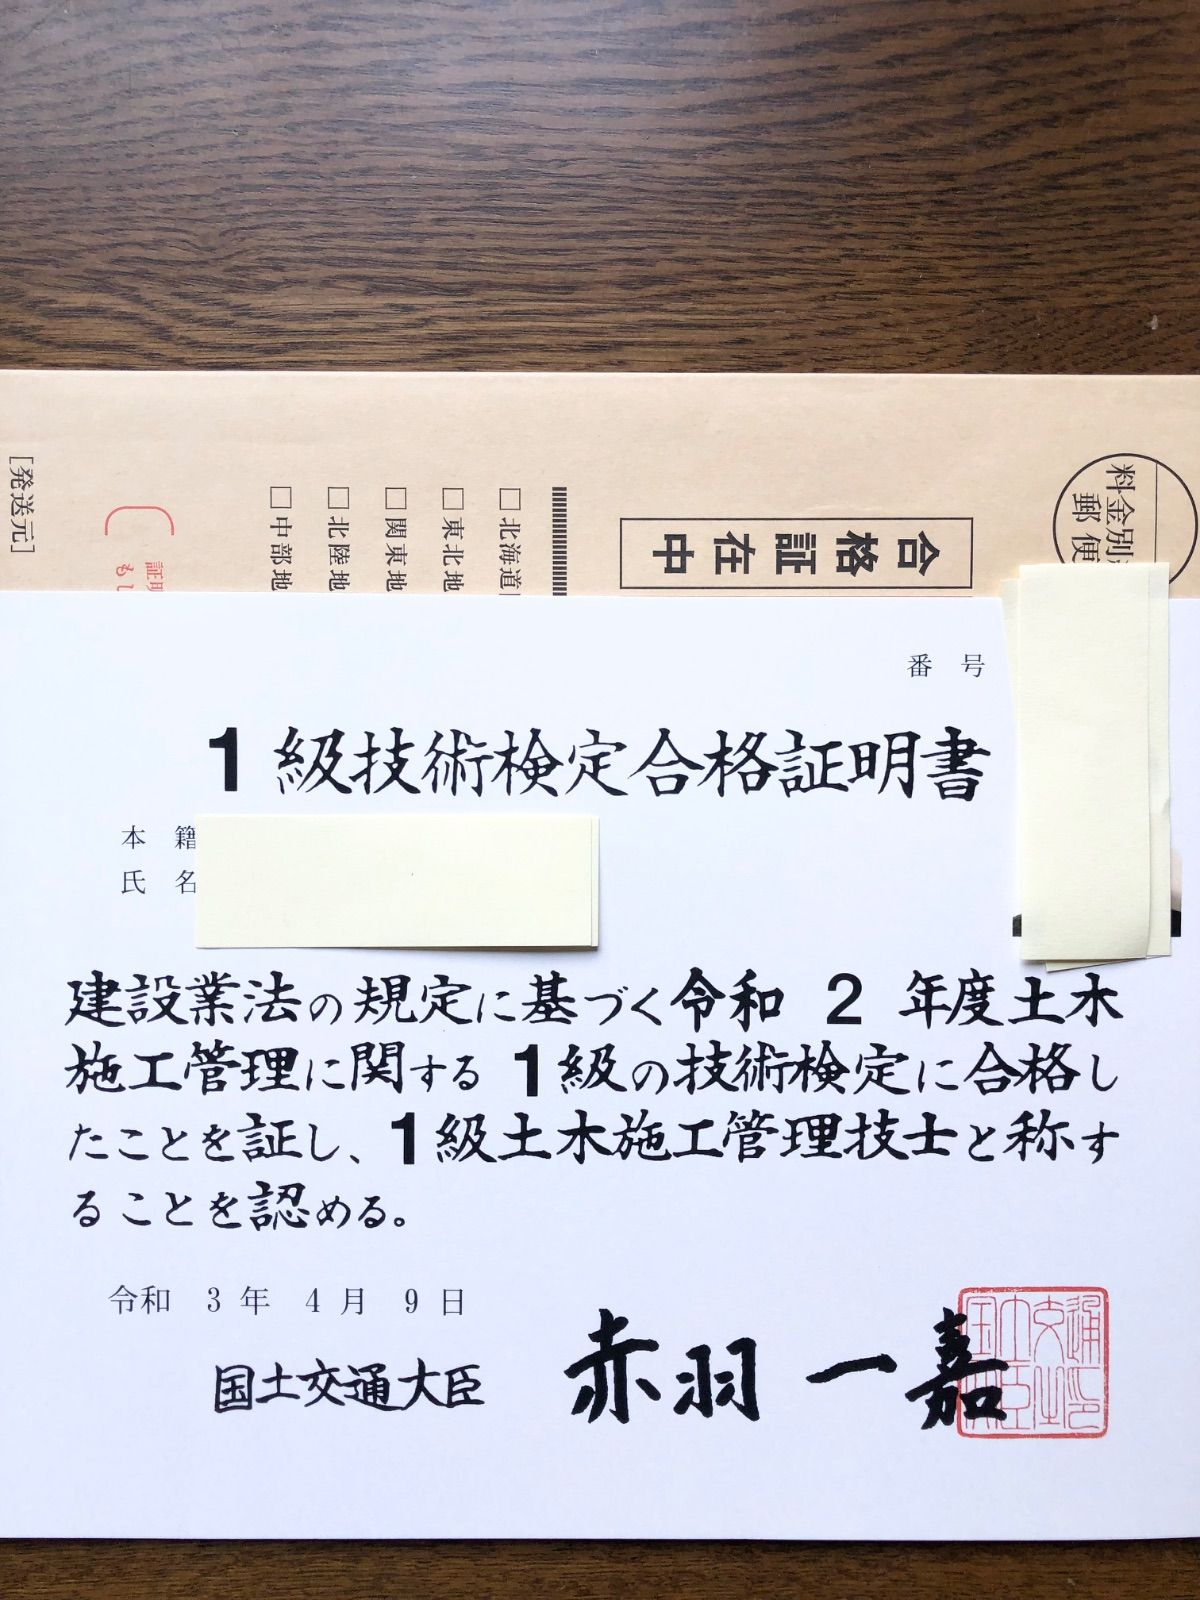 料金別
郵便
合格証在中
□北海道
□東北地
□関東地
□北陸地
□中部地
[発送元]
番号
1級技術検定合格証明書
本籍
氏名
建設業法の規定に基づく令和 2 年度土木
施工管理に関する 1級の技術検定に合格し
たことを証し、1級土木施工管理技士と称す
ることを認める。
令和 3年 4月 9日
国土交通大臣 赤羽一嘉